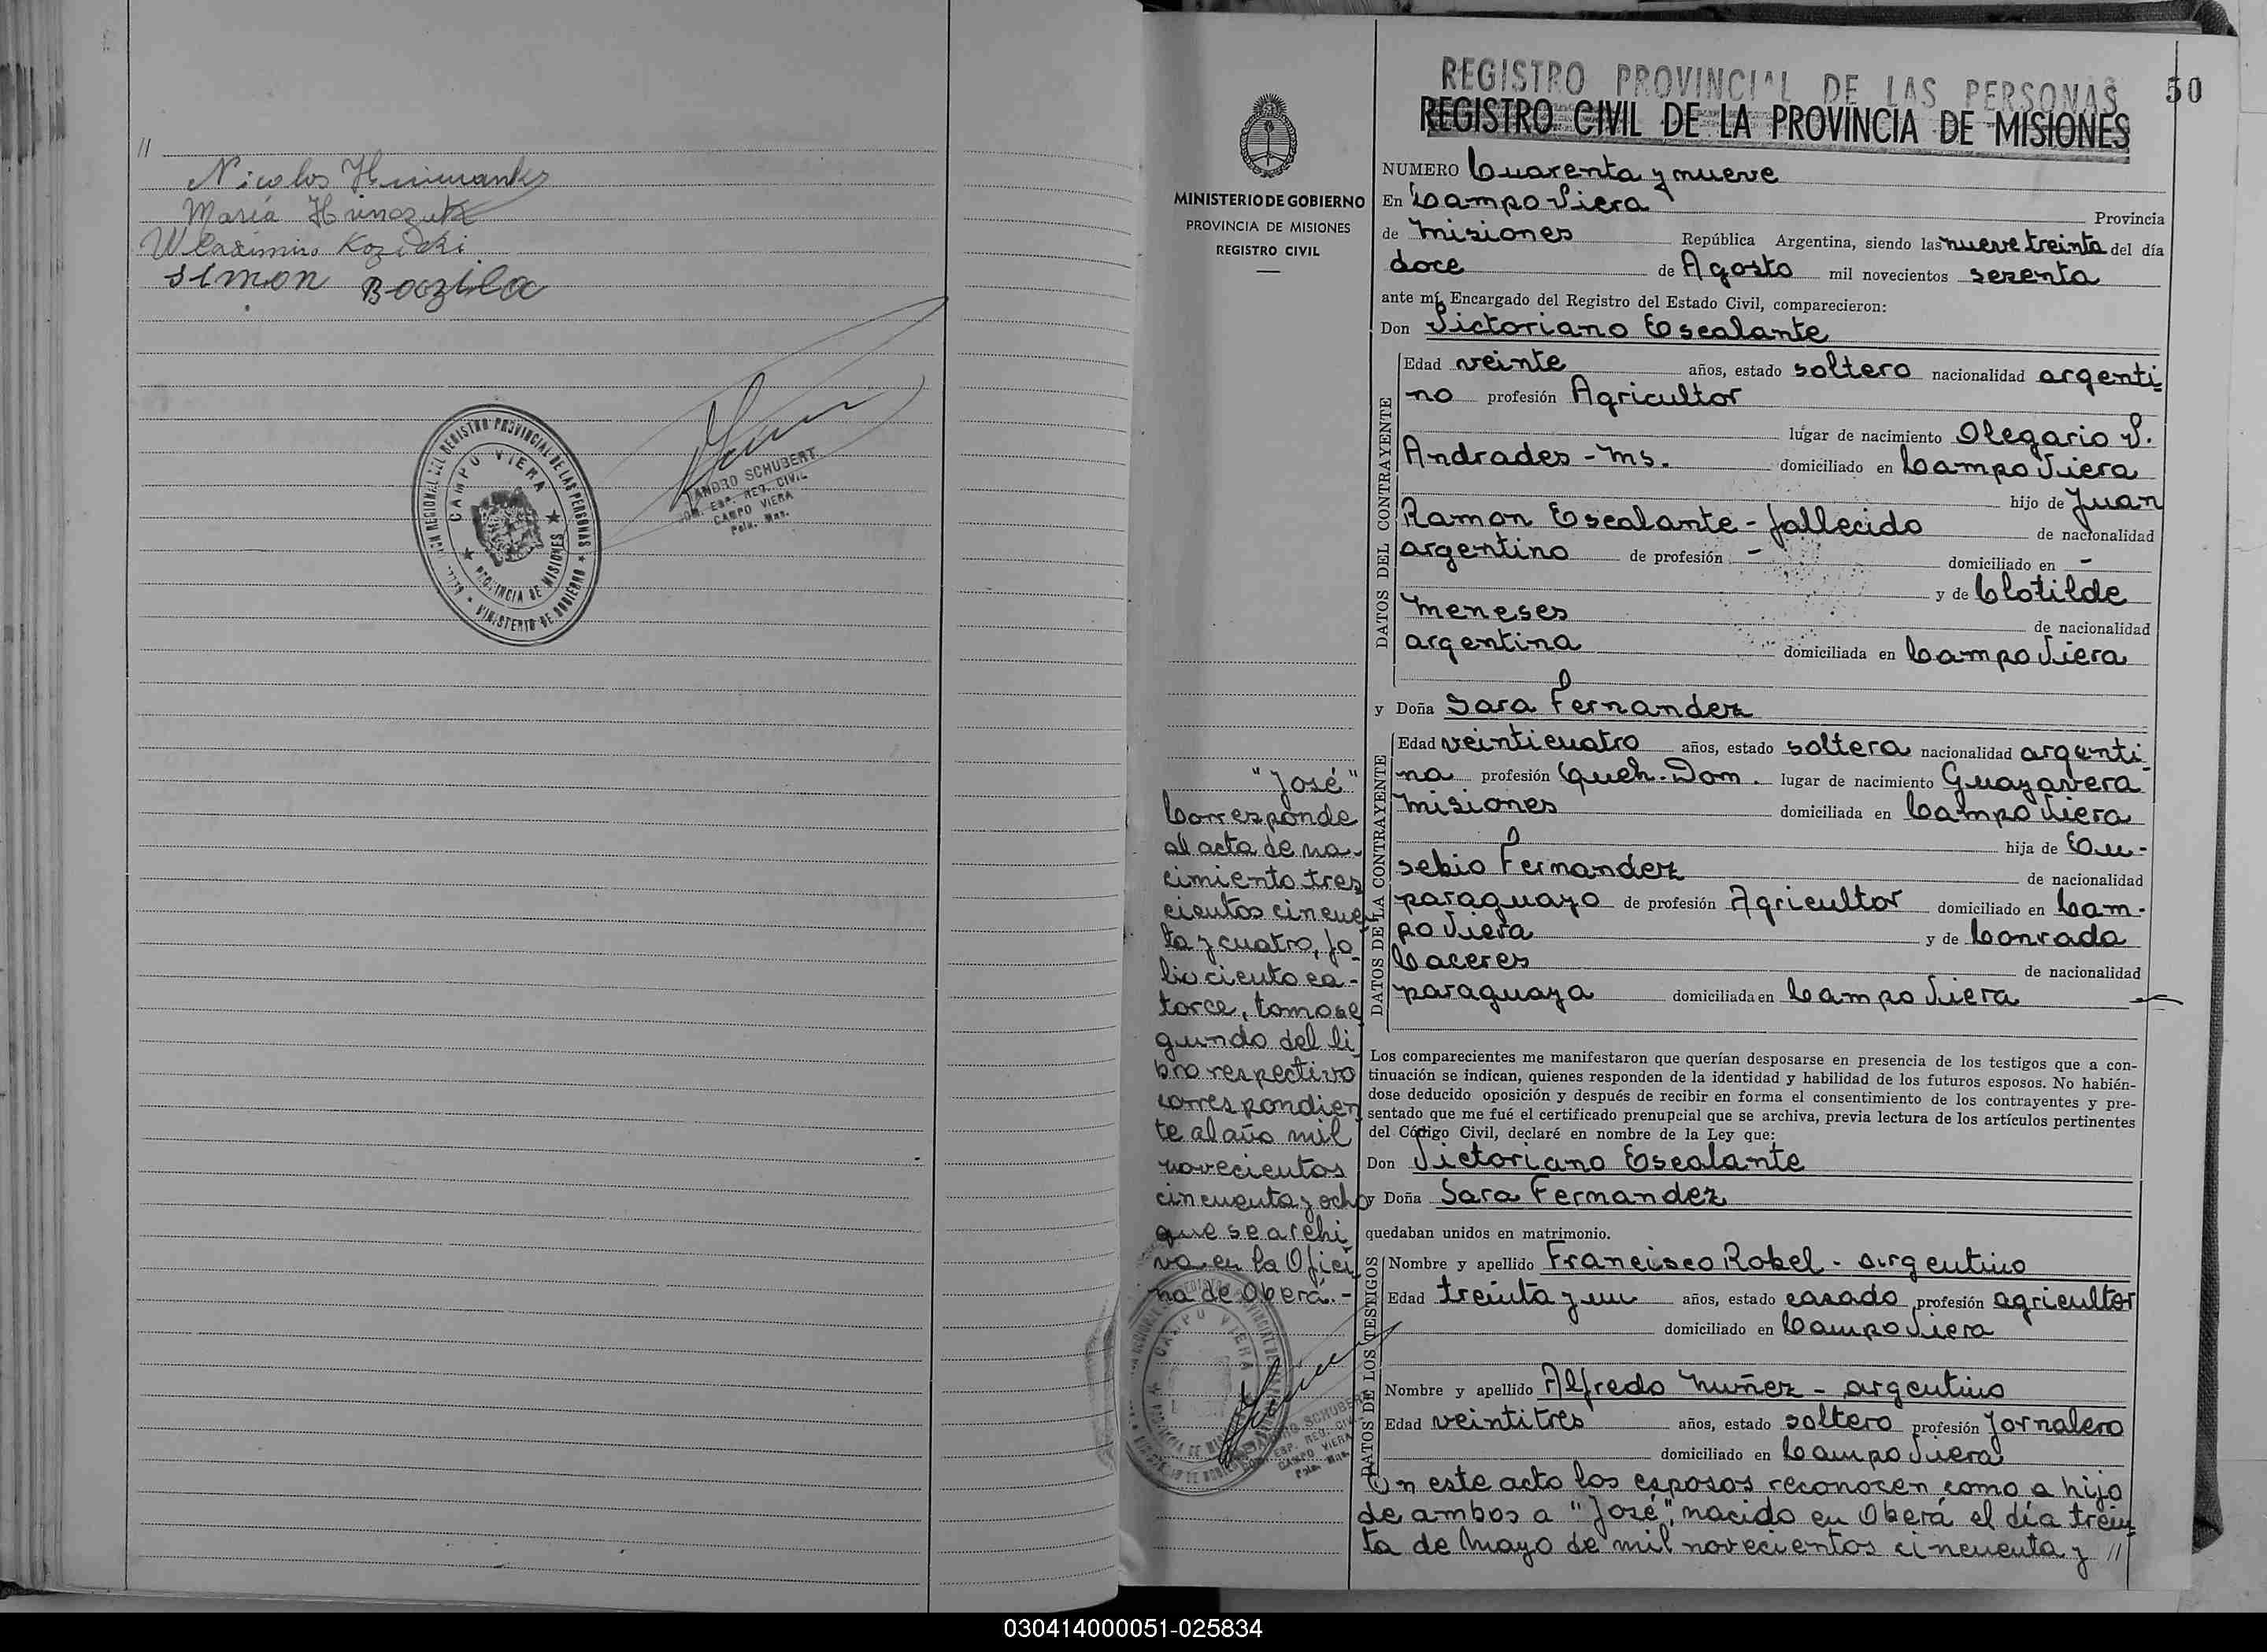 //
Nicolas
María
Wladimiro Kozicki
simon
CAMPO VIERA
PROVINCIA DE MISIONES
MINISTERIO DE GOBIERNO
SCHUBERT
ESP. REG. CIVIL
CAMPO VIERA
Pcia. Mns.
50
REGISTRO PROVINCIAL DE LAS PERSONAS
REGISTRO CIVIL DE LA PROVINCIA DE MISIONES
MINISTERIO DE GOBIERNO
PROVINCIA DE MISIONES
REGISTRO CIVIL
NUMERO Cuarenta y nueve
En Campo Viera Provincia
de Misiones República Argentina, siendo las nueve treinta del día
doce de Agosto mil novecientos sesenta
ante mí, Encargado del Registro del Estado Civil, comparecieron:
Don Victoriano Escalante
DATOS DEL CONTRAYENTE
Edad veinte años, estado soltero nacionalidad argenti-
no profesión Agricultor
lugar de nacimiento Olegario V.
Andrades - Ms. domiciliado en Campo Viera
hijo de Juan
Ramon Escalante - fallecido de nacionalidad
argentino de profesión - domiciliado en -
y de Clotilde
Meneses de nacionalidad
argentina domiciliada en Campo Viera
y Doña Sara Fernandez
DATOS DE LA CONTRAYENTE
Edad veinticuatro años, estado soltera nacionalidad argenti-
na profesión Queh. Dom. lugar de nacimiento Guayavera
Misiones domiciliada en Campo Viera
hija de Eu-
sebio Fernandez de nacionalidad
paraguayo de profesión Agricultor domiciliado en Cam-
po Viera y de Conrada
Caceres de nacionalidad
paraguaya domiciliada en Campo Viera
Los comparecientes me manifestaron que querían desposarse en presencia de los testigos que a con-
tinuación se indican, quienes responden de la identidad y habilidad de los futuros esposos. No habién-
dose deducido oposición y después de recibir en forma el consentimiento de los contrayentes y pre-
sentado que me fué el certificado prenupcial que se archiva, previa lectura de los artículos pertinentes
del Código Civil, declaré en nombre de la Ley que:
Don Victoriano Escalante
y Doña Sara Fernandez
quedaban unidos en matrimonio.
DATOS DE LOS TESTIGOS
Nombre y apellido Francisco Robel - argentino
Edad treinta y un años, estado casado profesión agricultor
domiciliado en Campo Viera
Nombre y apellido Alfredo Nuñez - argentino
Edad veintitres años, estado soltero profesión Jornalero
domiciliado en Campo Viera
En este acto los esposos reconocen como a hijo
de ambos a "José", nacido en Oberá el día trein-
ta de Mayo de mil novecientos cincuenta y //
"José"
Corresponde
al acta de na-
cimiento tres
cientos cincuen
ta y cuatro, fo-
lio ciento ca-
torce, tomo se
gundo del li-
bro respectivo
correspondien
te al año mil
novecientos
cincuenta y ocho
que se archi
va en la Ofici-
na de Oberá.-
CAMPO VIERA
SCHUBERT
ESP. REG. CIVIL
CAMPO VIERA
Pcia. Mns.
030414000051-025834